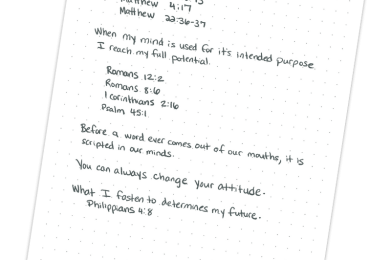 Matthew 4:17
Matthew 22:36-37
When my mind is used for it's intended purpose
I reach my full potential.
Romans 12:2
Romans 8:6
1 Corinthians 2:16
Psalm 45:1
Before a word ever comes out of our mouths, it is
scripted in our minds.
You can always change your attitude.
What I fasten to determines my future.
Philippians 4:8